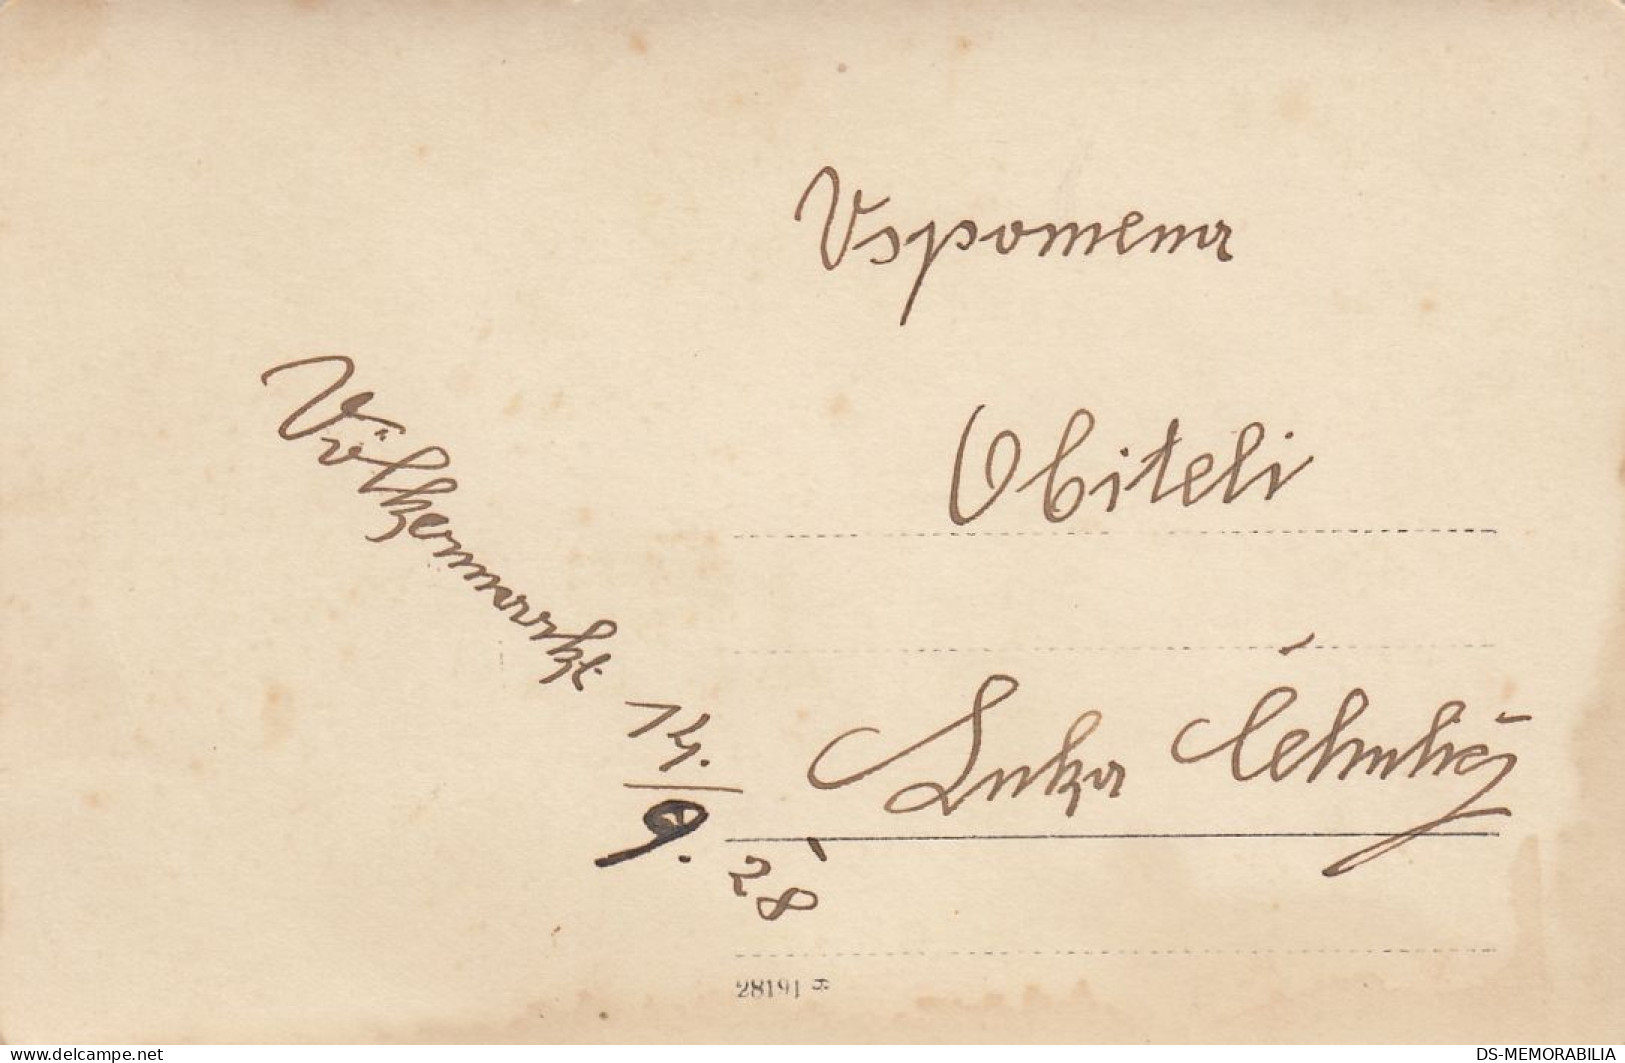 Vspomena
Obiteli
Luka
Völkermarkt
14.
9.
28
28191
www.delcampe.net
DS-MEMORABILIA